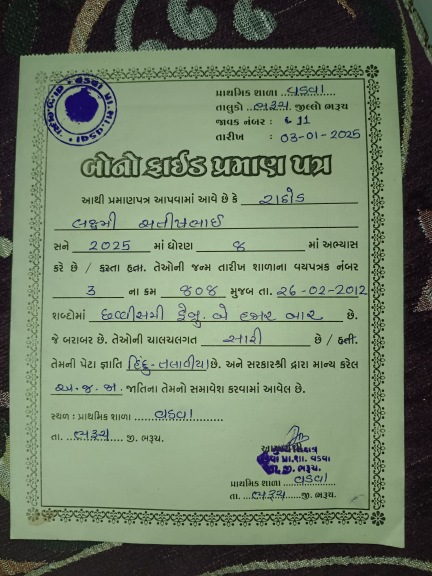 પ્રાથમિક શાળા વડવા
તાલુકો ભરૂચ જીલ્લો ભરૂચ
જાવક નંબર : 611
તારીખ : 03-01-2025
બોનો ફાઈડ પ્રમાણ પત્ર
આથી પ્રમાણપત્ર આપવામાં આવે છે કે રાઠોડ
લક્ષ્મી સતીષભાઈ
સને 2025 માં ધોરણ ૭ માં અભ્યાસ
કરે છે / કરતા હતા. તેઓની જન્મ તારીખ શાળાના વયપત્રક નંબર
3 ના ક્રમ ૪૦૪ મુજબ તા. 26-02-2012
શબ્દોમાં છવ્વીસમી ફેબ્રુ. બે હજાર બાર છે.
જે બરાબર છે. તેઓની ચાલચલગત સારી છે / હતી.
તેમની પેટા જ્ઞાતિ હિંદુ-તલાવીયા છે. અને સરકારશ્રી દ્રારા માન્ય કરેલ
અ.જ.જા. જાતિના તેમનો સમાવેશ કરવામાં આવેલ છે.
સ્થળ : પ્રાથમિક શાળા વડવા
તા. ભરૂચ જી. ભરૂચ.
મુખ્ય શિક્ષક
પ્રા.શા. વડવા
જી. ભરૂચ.
પ્રાથમિક શાળા વડવા
તા. ભરૂચ જી. ભરૂચ.